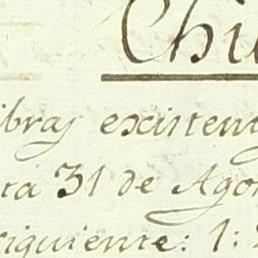 Chi
ibras existent
ra 31 de Ago
siguiente: 1: